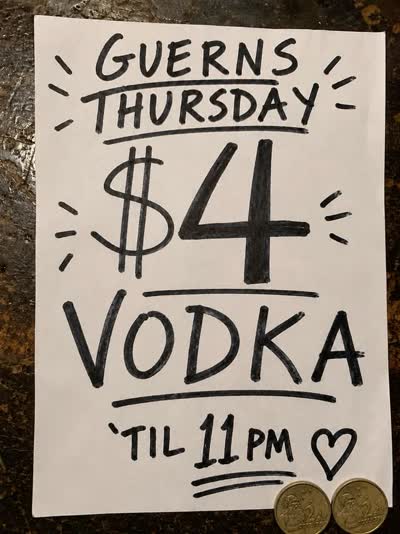 GUERNS
THURSDAY
$4
VODKA
'TIL 11PM ♡